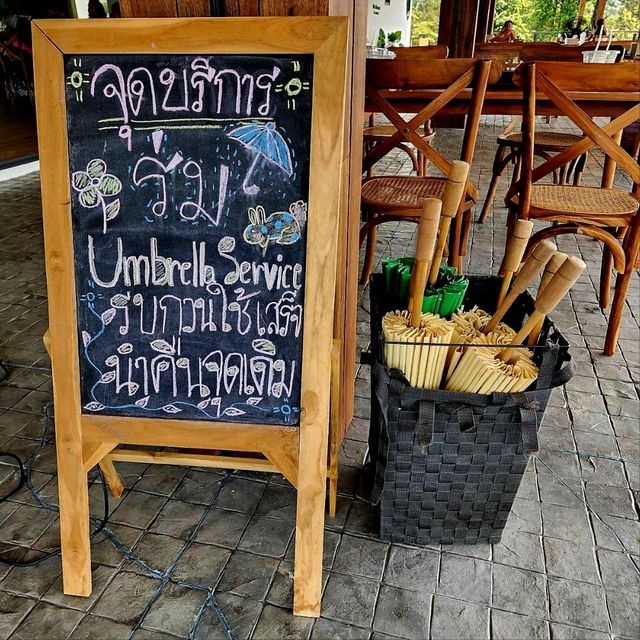 จุดบริการ
ร่ม
Umbrella Service
รบกวนใช้เสร็จ
นำคืนจุดเดิม